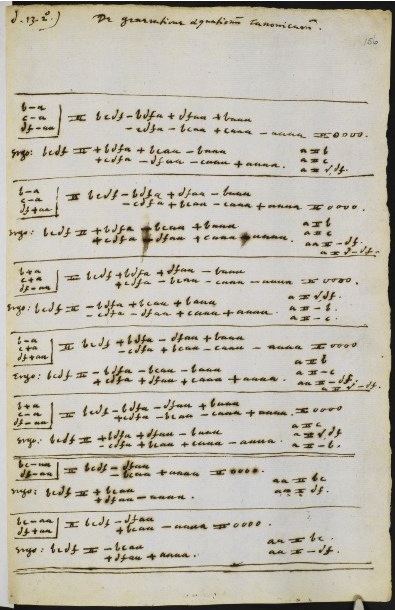 d.13.2°) De generatione æquationũ canonicarũ.
b-a
c-a
df-aa = bcdf - bdfa + dfaa + baaa
- cdfa - bcaa + caaa - aaaa = 0000.
Ergo: bcdf = + bdfa + bcaa - baaa a = b
+ cdfa - dfaa - caaa + aaaa. a = c
a = √df.
b-a
c-a
df+aa = bcdf - bdfa + dfaa - baaa
- cdfa + bcaa - caaa + aaaa = 0000.
Ergo: bcdf = + bdfa - bcaa + baaa a = b
+ cdfa - dfaa + caaa - aaaa. a = c
aa = -df.
a = √-df.
b+a
c+a
df-aa = bcdf + bdfa + dfaa - baaa
+ cdfa - bcaa - caaa - aaaa = 0000.
Ergo: bcdf = - bdfa + bcaa + baaa a = √df.
- cdfa - dfaa + caaa + aaaa. a = -b.
a = -c.
b-a
c+a
df+aa = bcdf + bdfa - dfaa + baaa
- cdfa + bcaa - caaa - aaaa = 0000
a = b
Ergo: bcdf = - bdfa - bcaa - baaa a = -c
+ cdfa + dfaa + caaa + aaaa. aa = -df.
a = √-df.
b+a
c-a
df-aa = bcdf - bdfa - dfaa + baaa
+ cdfa - bcaa - caaa + aaaa. = 0000
a = c
Ergo: bcdf = + bdfa + dfaa - baaa a = √df
- cdfa + bcaa + caaa - aaaa. a = -b.
bc-aa
df-aa = bcdf - dfaa
- bcaa + aaaa = 0000.
Ergo: bcdf = + bcaa aa = bc
+ dfaa - aaaa. aa = df.
bc-aa
df+aa = bcdf - dfaa
+ bcaa - aaaa = 0000.
Ergo: bcdf = - bcaa aa = bc.
+ dfaa + aaaa. aa = -df.